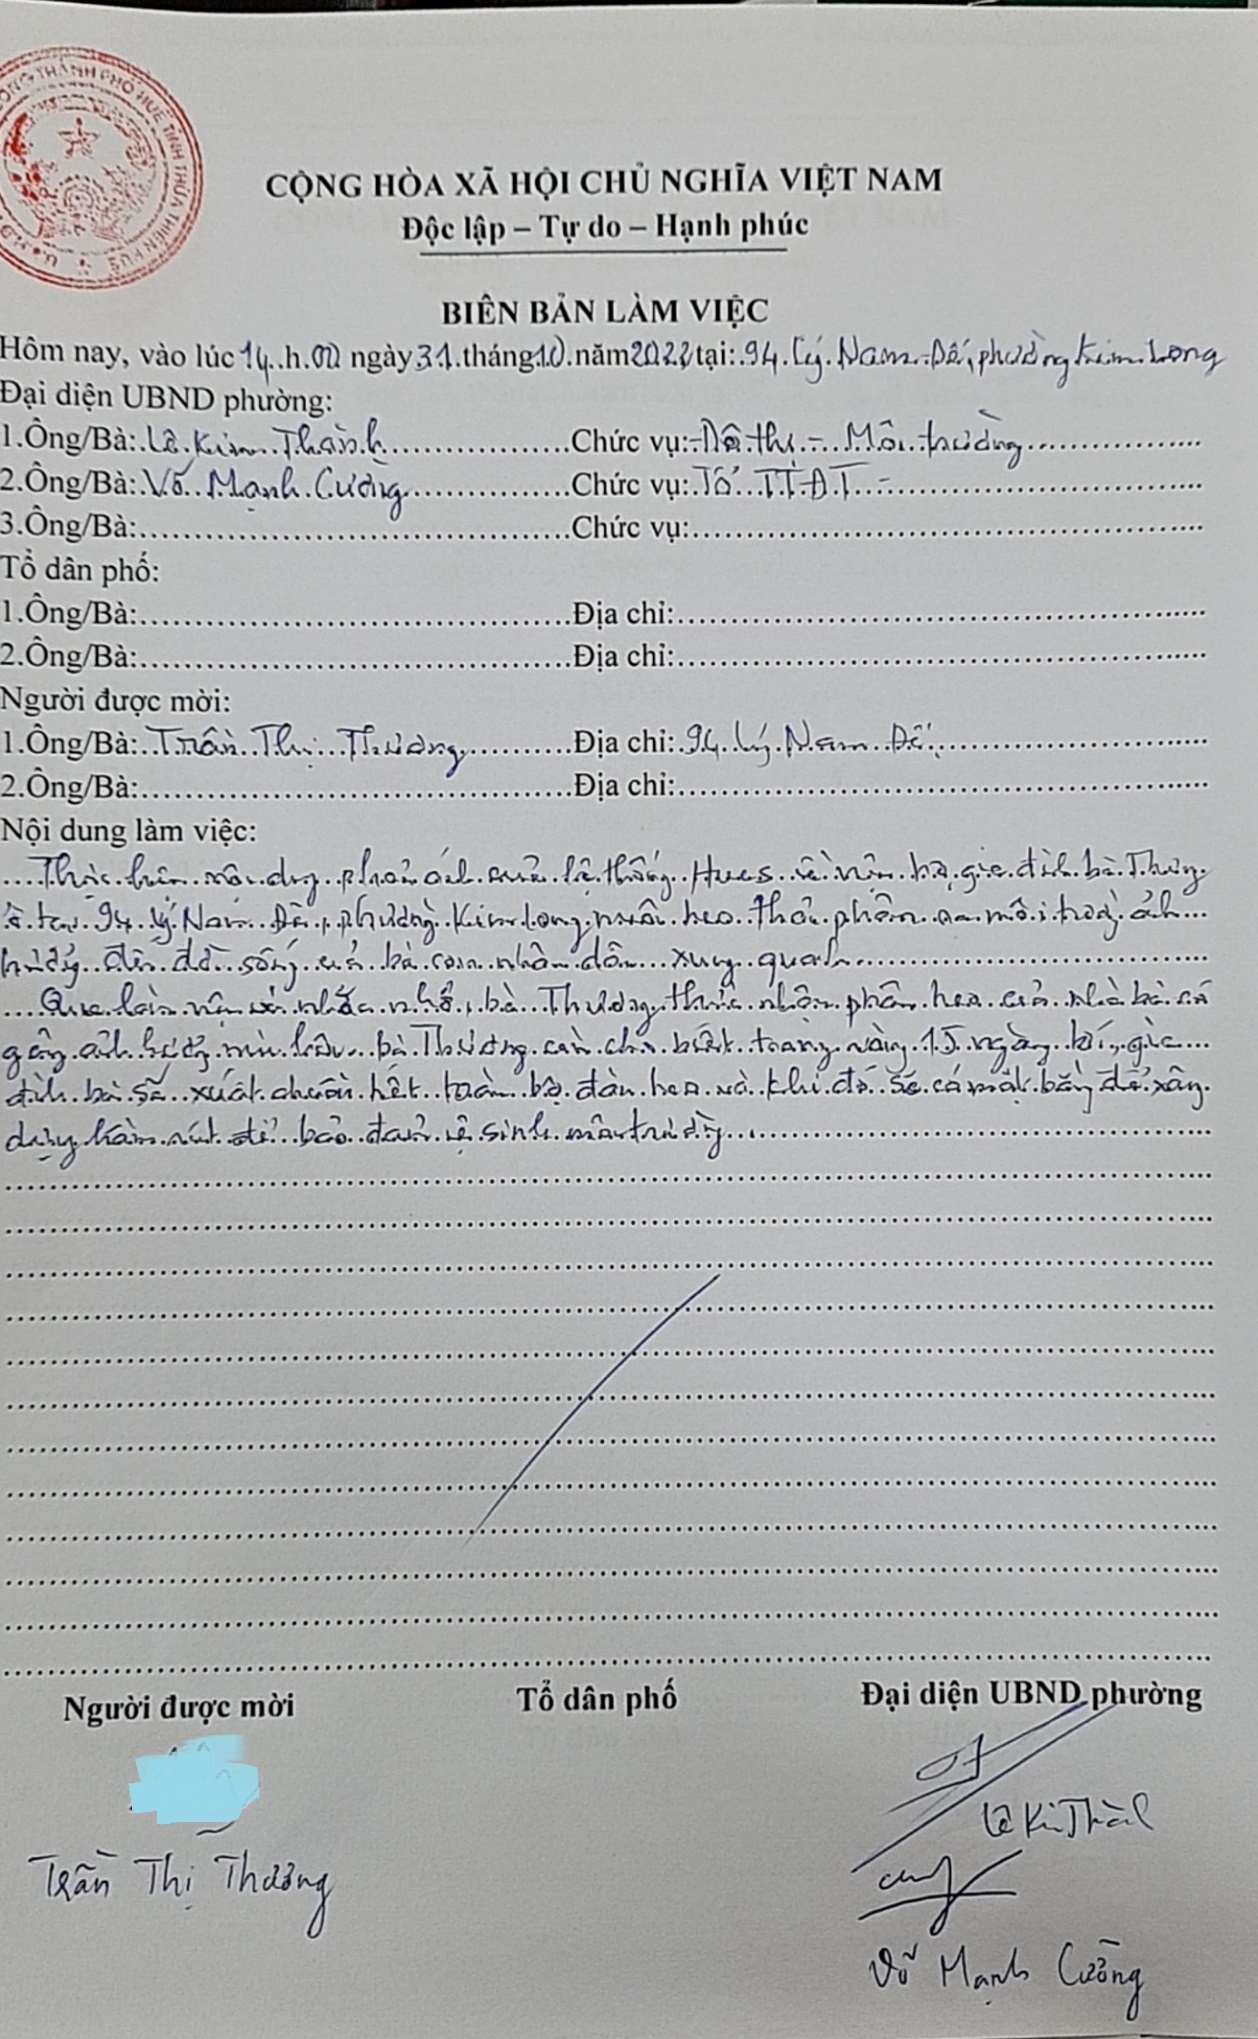 THÀNH PHỐ HUẾ TỈNH THỪA THIÊN HUẾ
CỘNG HÒA XÃ HỘI CHỦ NGHĨA VIỆT NAM
Độc lập – Tự do – Hạnh phúc
BIÊN BẢN LÀM VIỆC
Hôm nay, vào lúc 14..h.00 ngày 31.tháng 10.năm 2022 tại: 94. Lý. Nam. Đế, phường Kim Long
Đại diện UBND phường:
1.Ông/Bà: Lê Kim Thành Chức vụ: Đô thị - Môi trường
2.Ông/Bà: Võ Mạnh Cường Chức vụ: Tổ TTĐT
3.Ông/Bà: Chức vụ:
Tổ dân phố:
1.Ông/Bà: Địa chỉ:
2.Ông/Bà: Địa chỉ:
Người được mời:
1.Ông/Bà: Trần Thị Thương Địa chỉ: 94 Lý Nam Đế
2.Ông/Bà: Địa chỉ:
Nội dung làm việc:
Thực hiện nội dung phản ánh của hệ thống Hues về việc hộ gia đình bà Thương
ở tại 94 Lý Nam Đế, phường Kim Long nuôi heo thải phân ra môi trường ảnh
hưởng đến đời sống của bà con nhân dân xung quanh
Qua làm việc và nhắc nhở, bà Thương thừa nhận phân heo của nhà bà có
gây ảnh hưởng mùi hôi. bà Thương cam cho biết trong vòng 15 ngày tới, gia
đình bà sẽ xuất chuồn hết toàn bộ đàn heo và khi đó sẽ có mặt bằng để xây
dựng hầm rút để bảo đảm vệ sinh môi trường
Người được mời Tổ dân phố Đại diện UBND phường
Lê Kim Thành
Trần Thị Thương
Võ Mạnh Cường